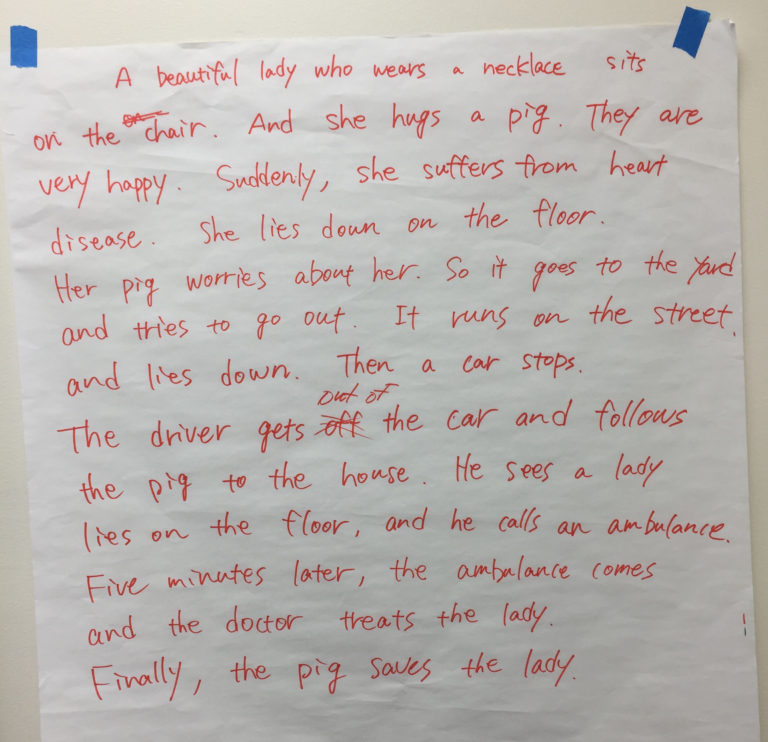 A beautiful lady who wears a necklace sits
on the chair. And she hugs a pig. They are
very happy. Suddenly, she suffers from heart
disease. She lies down on the floor.
Her pig worries about her. So it goes to the yard
and tries to go out. It runs on the street.
and lies down. Then a car stops.
The driver gets out of the car and follows
the pig to the house. He sees a lady
lies on the floor, and he calls an ambulance.
Five minutes later, the ambulance comes
and the doctor treats the lady.
Finally, the pig saves the lady.